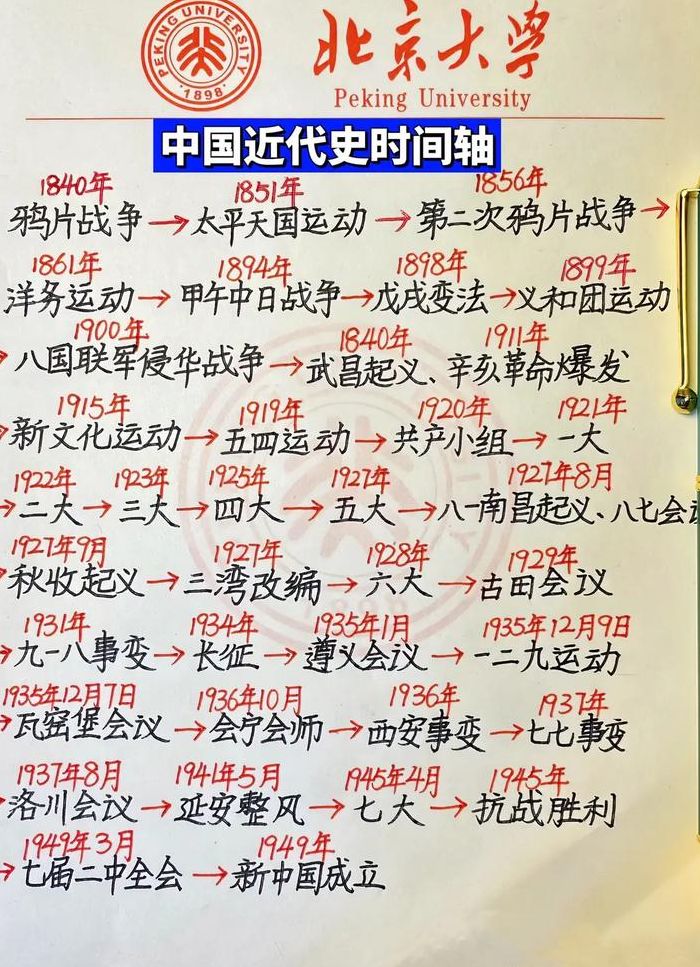 PEKING UNIVERSITY
1898
北京大学
Peking University
中国近代史时间轴
1840年 1851年 1856年
鸦片战争→太平天国运动→第二次鸦片战争→
1861年 1894年 1898年 1899年
洋务运动→甲午中日战争→戊戌变法→义和团运动
1900年 1840年 1911年
→八国联军侵华战争→武昌起义、辛亥革命爆发
1915年 1919年 1920年 1921年
→新文化运动→五四运动→共产小组→一大
1922年 1923年 1925年 1927年 1927年8月
→二大→三大→四大→五大→八一南昌起义、八七会议
1927年9月 1927年 1928年 1929年
秋收起义→三湾改编→六大→古田会议
1931年 1934年 1935年1月 1935年12月9日
→九一八事变→长征→遵义会议→一二九运动
1935年12月7日 1936年10月 1936年 1937年
→瓦窑堡会议→会宁会师→西安事变→七七事变
1937年8月 1941年5月 1945年4月 1945年
→洛川会议→延安整风→七大→抗战胜利
1949年3月 1949年
→七届二中全会→新中国成立